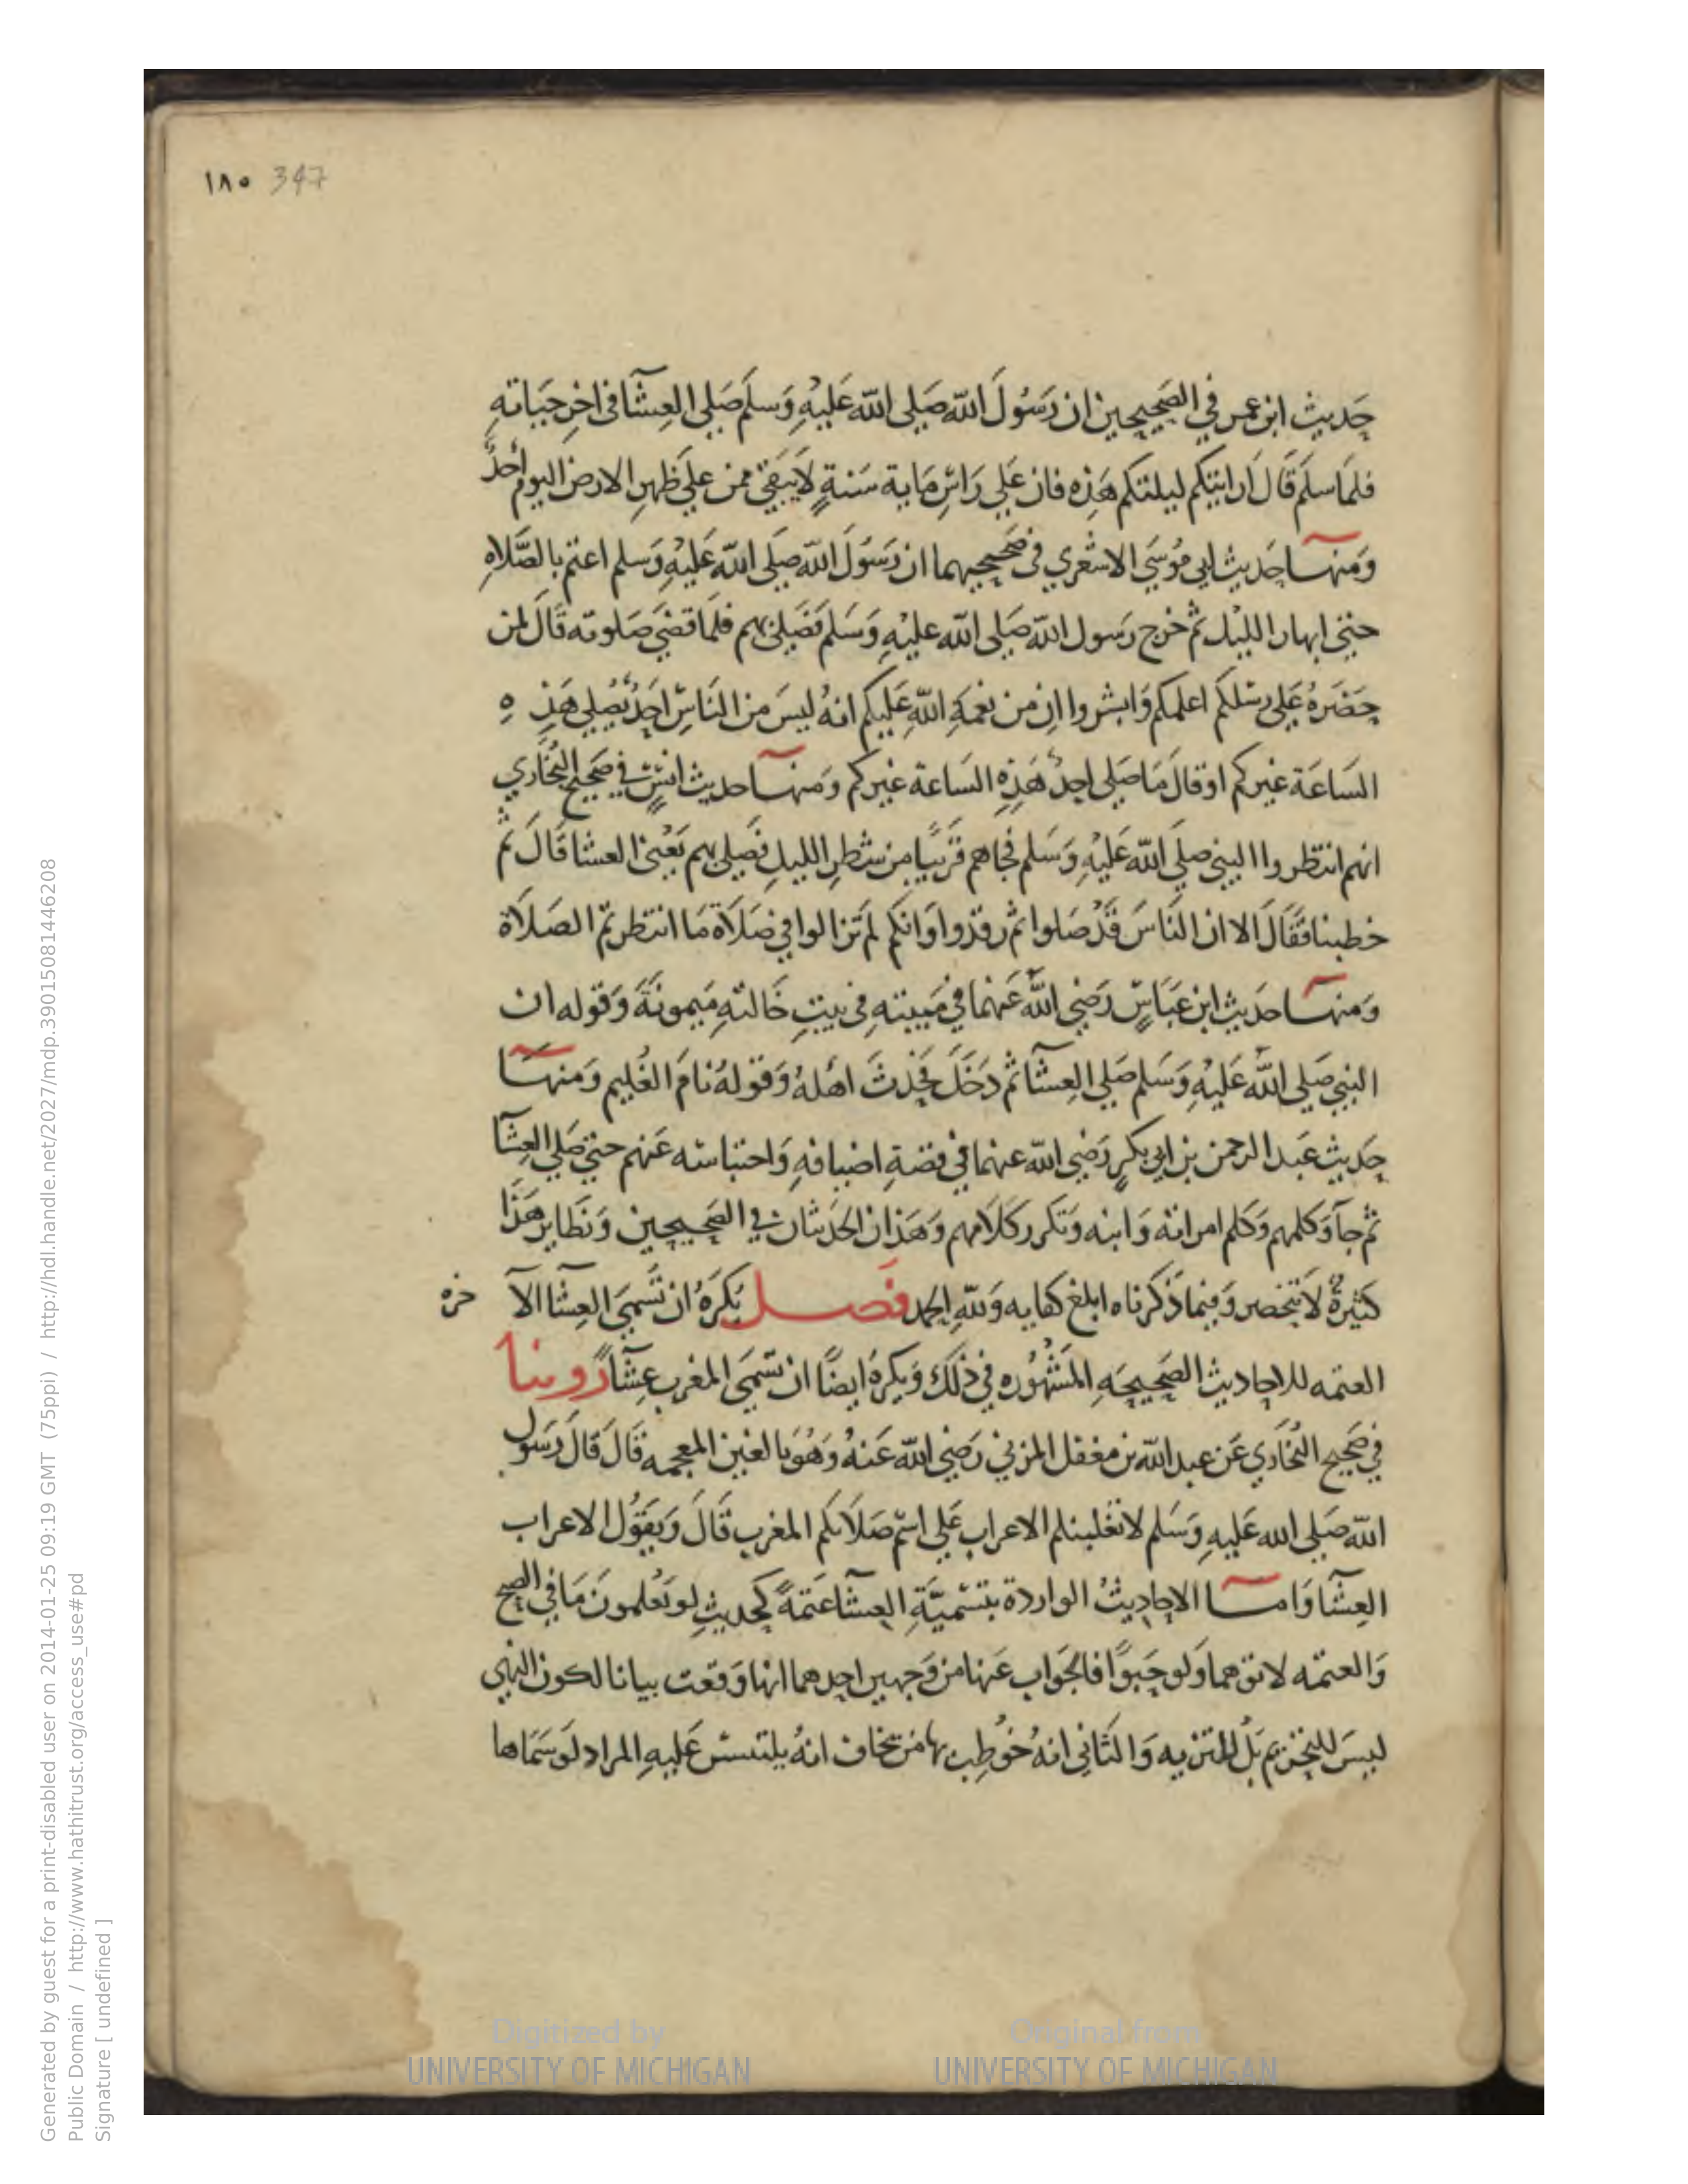 ١٨٠ 347
حَديث ابن عمر في الصَحيحين ان رَسُولَ الله صَلى الله عَليْهِ وَسلَم صَلى العِشآ في اخرِ حَيَاتهِ
فلمَا سلمَ قَالَ ارايتكم ليلتكم هَذِه فان عَلي رَاسِ مَاية سَنةٍ لَا يَبقي ممن علي ظهرِ الارض اليوم أحدٌ
وَمنهَا حَديث ابي مُوسَي الاشعري في صَحيحيهما ان رَسُولَ الله صَلى الله عَليْهِ وَسلم اعتم بالصَّلاهِ
حتي ابهار الليْل ثم خرج رَسول الله صَلى الله عليْهِ وَسَلم فَصَلى بهم فلمَا قضَي صَلوته قالَ لمن
حَضَرهُ عَلى رسْلكم اعلمكم وَابشروا ان من نعمَهِ اللهِ عَليكم انهُ ليسَ من النَاسِ احَدٌ يُصَلي هَذِ هِ
السَاعَة غيركم او قالَ مَا صَلى احدٌ هَذِهِ السَاعة غيركم وَمنهَا حديث انسٍ في صَحيح البُخَاري
انهم انتظروا النبي صلى الله عَليْهِ وَسَلم فجاهم قرَيبًا من شطرِ الليلِ فصَلى بهم يَعْني العشا قَالَ ثم
خطبنا فقَالَ الا ان النَاسَ قَدْ صَلوا ثم رقدُوا وَانكم لم تزالوا في صَلَاة مَا انتظرتم الصَلَاة
وَمنهَا حَديث ابن عَبَاسٍ رَضِي اللهُ عَنهما في مَبيتهِ في بَيتِ خَالتهِ مَيمونَةَ وَقوله ان
النبي صَلى الله عَليْهِ وَسَلم صَلي العِشآ ثم دَخَلَ فحَدثَ اهلهُ وَقولهُ نامَ الغُليم وَمنهَا
حَديث عَبد الرحمن بن ابي بكرٍ رَضِي الله عنهما في قصَةِ اضيافهِ وَاحتباسه عَنهم حتي صَلي العِشآ
ثم جآ وَكلمهم وَكلم امراته وَابنه وَتكرر كَلَامهم وَهَذان الحَديثان في الصَحيحين وَنظاير هَذَا
كثيرَةٌ لَا تنحصر وَفيمَا ذَكرناه ابلغ كفايه وَلله الحمد فَصل يُكرَهُ ان تسَمي العِشآ الآ خره
العتمه للاحاديث الصَحيحَهِ المَشْهُوره في ذلكَ وَيكرَهُ ايضًا ان تسَمَي المغرب عِشآً رُوينا
في صَحيح البُخَاري عَن عبد الله بن مغفل المزني رَضي الله عَنهُ وَهُوَ بالغين المعجمه قَالَ قَالَ رَسول
الله صَلى الله عَليهِ وَسَلم لا تغلبنكم الاعراب عَلى اسْم صَلَاتكم المغرب قَالَ وَيقوُل الاعراب
العِشآ وَاما الاحَاديثُ الواردة بتسْميَّةِ العِشآ عَتمَةً كحَديثِ لو تعْلمونَ مَا في الصبح
وَالعتمه لاتوهما وَلو حَبوًا فالجَواب عَنها من وَجهين احدهما انها وَقعت بيانا لكون النهي
ليسَ للتحريم بَلْ للتنزيه وَالثاني انهُ خوُطِب بها من يخاف انهُ يلتبس عَليهِ المراد لَو سَمَاها